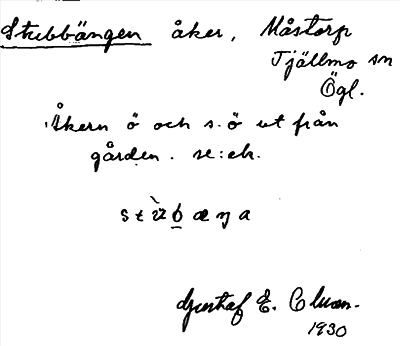 Stubbängen åker, Måstorp
Tjällmo sn
Ögl.
Åkern ö och s.ö ut från
gården. se: ek.
Gustaf E. Cluen.
1930